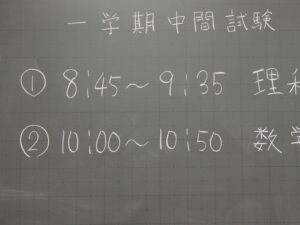 一学期中間試験
① 8:45～9:35 理科
② 10:00～10:50 数学